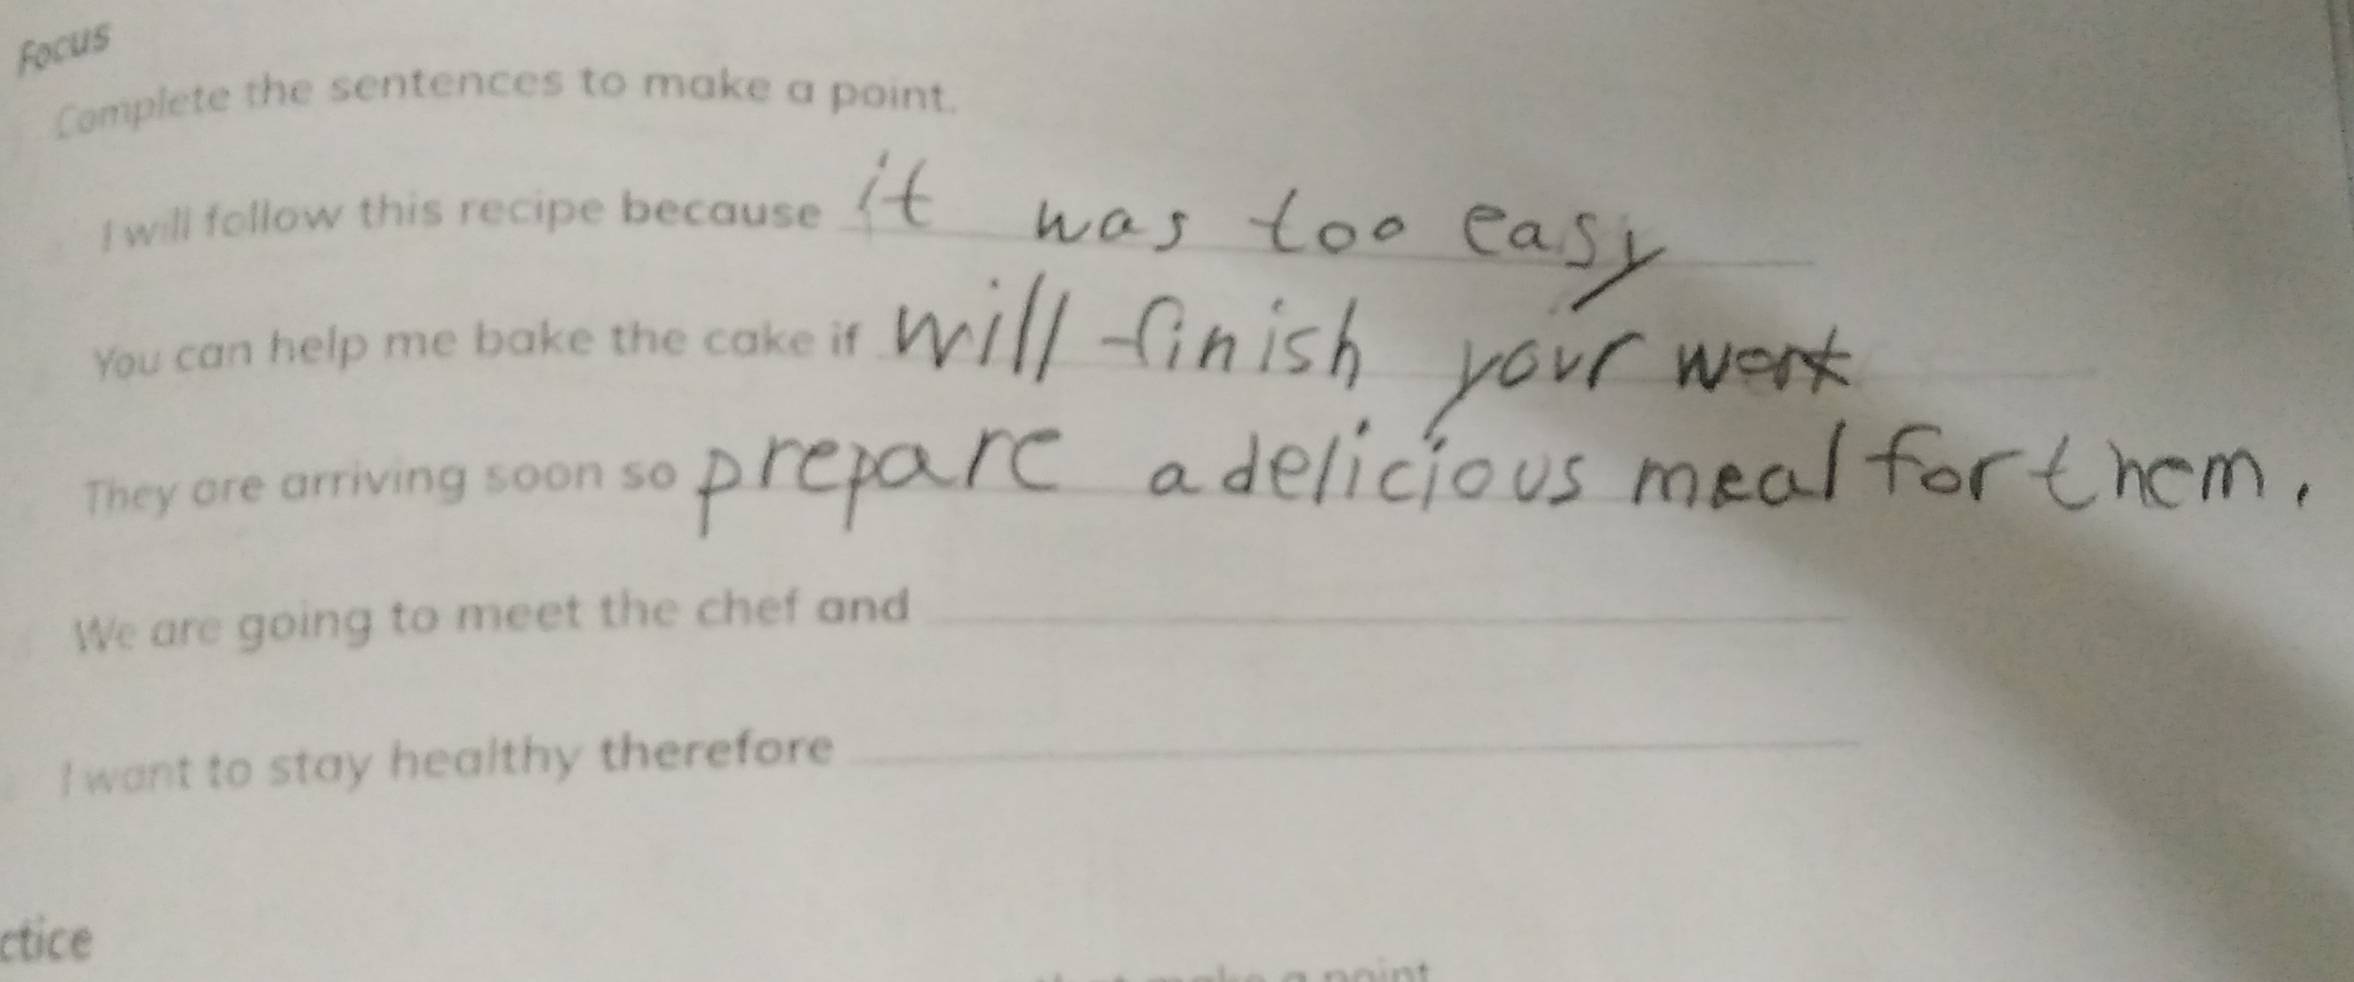 Focus
Complete the sentences to make a point.
I will follow this recipe because it was too easy
You can help me bake the cake if will finish your work
They are arriving soon so prepare a delicious meal for them.
We are going to meet the chef and
I want to stay healthy therefore
ctice
make a point